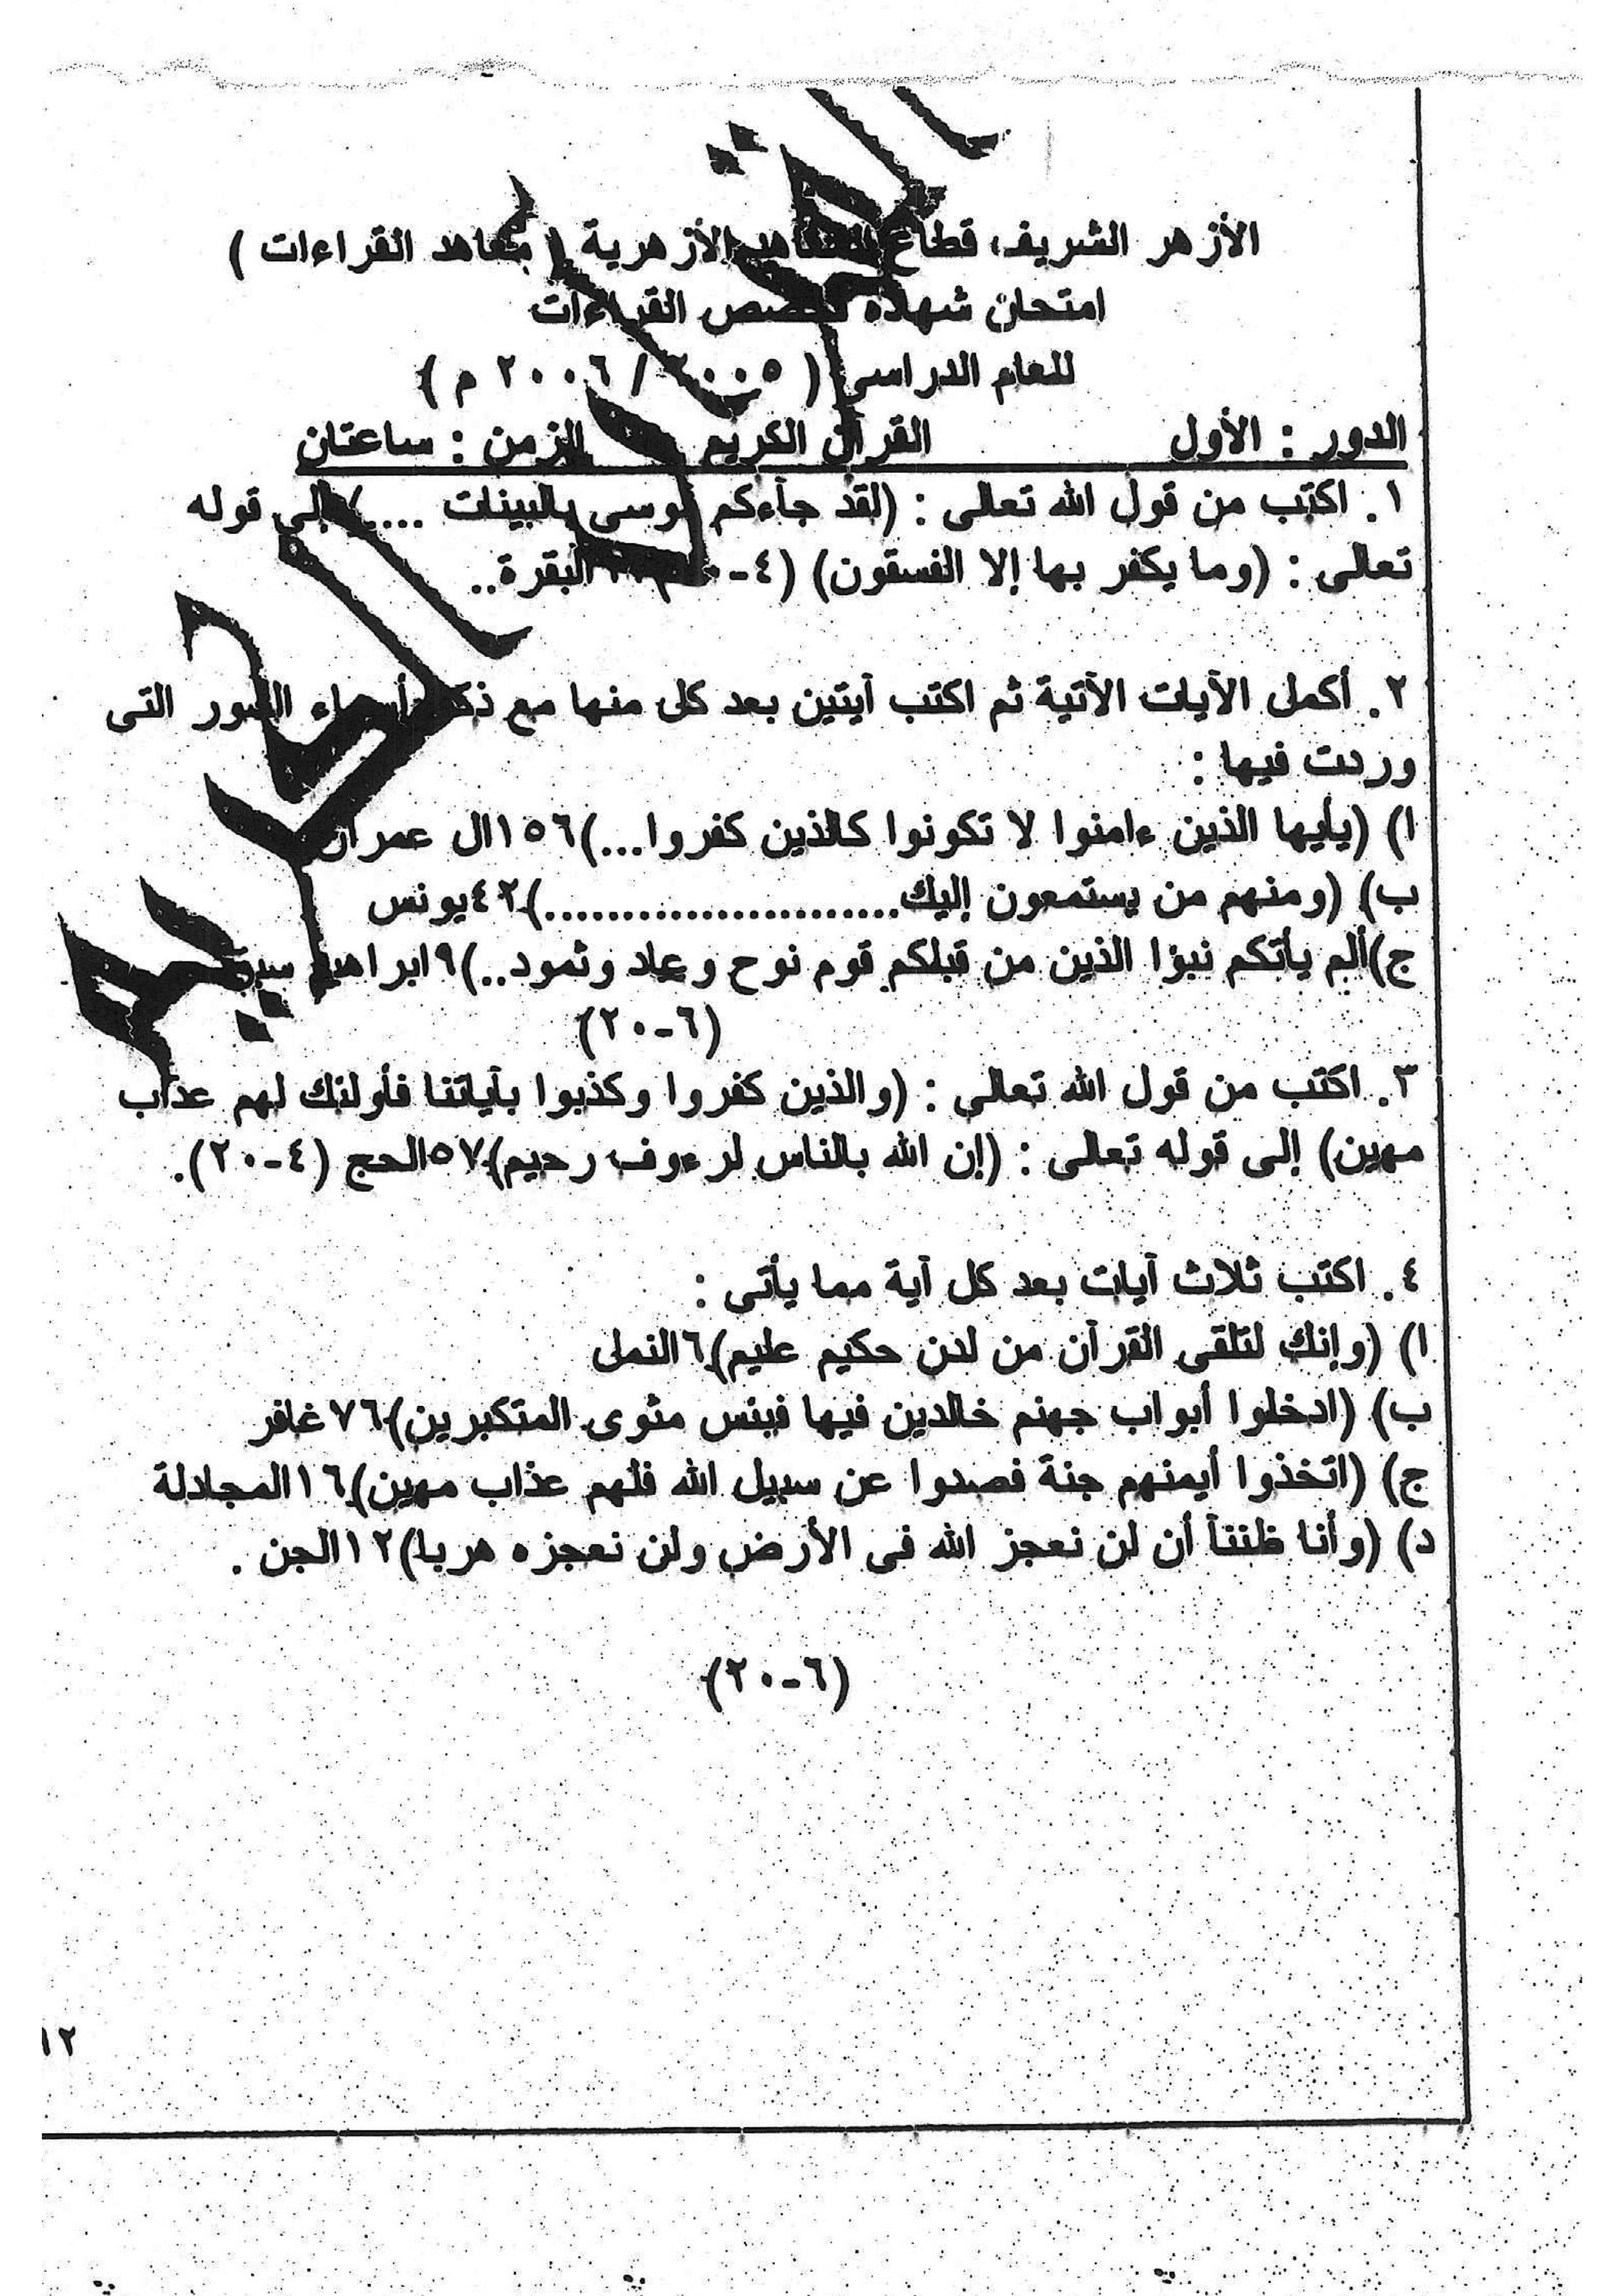 الأزهر الشريف، قطاع المعاهد الأزهرية ( معاهد القراءات )
امتحان شهادة تخصص القراءات
للعام الدراسى ( ٢٠٠٥ / ٢٠٠٦ م )
الدور : الأول القرآن الكريم الزمن : ساعتان
١. اكتب من قول الله تعالى : (لقد جآءكم موسى بالبينات ....) إلى قوله
تعالى : (وما يكفر بها إلا الفسقون) (٤-٢٠) البقرة..
٢. أكمل الآيات الآتية ثم اكتب آيتين بعد كل منها مع ذكر أسماء السور التى
وردت فيها :
ا) (يأيها الذين ءامنوا لا تكونوا كالذين كفروا...)١٥٦ال عمران
ب) (ومنهم من يستمعون إليك........................)٤٢يونس
ج)ألم يأتكم نبؤا الذين من قبلكم قوم نوح وعاد وثمود..)٩ابراهيم
(٦-٢٠)
٣. اكتب من قول الله تعالى : (والذين كفروا وكذبوا بآياتنا فأولئك لهم عذاب
مهين) إلى قوله تعالى : (إن الله بالناس لرءوف رحيم)٥٧الحج (٤-٢٠).
٤. اكتب ثلاث آيات بعد كل آية مما يأتى :
ا) (وإنك لتلقى القرآن من لدن حكيم عليم)٦النمل
ب) (ادخلوا أبواب جهنم خالدين فيها فبئس مثوى المتكبرين)٧٦غافر
ج) (اتخذوا أيمنهم جنة فصدوا عن سبيل الله فلهم عذاب مهين)١٦المجادلة
د) (وأنا ظننآ أن لن نعجز الله فى الأرض ولن نعجزه هربا)١٢الجن .
(٦-٢٠)
١٢